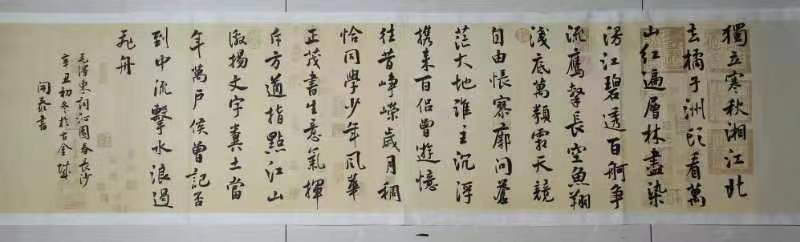 獨立寒秋湘江北
去橘子洲頭看萬
山紅遍層林盡染
漫江碧透百舸争
流鷹擊長空魚翔
淺底萬類霜天競
自由悵寥廓問蒼
茫大地誰主沉浮
携來百侣曾遊憶
往昔崢嶸歲月稠
恰同學少年風華
正茂書生意氣揮
斥方遒指點江山
激揚文字糞土當
年萬户侯曾記否
到中流擊水浪遏
飛舟
毛澤東詞沁園春長沙
辛丑初冬於古金城
泰書